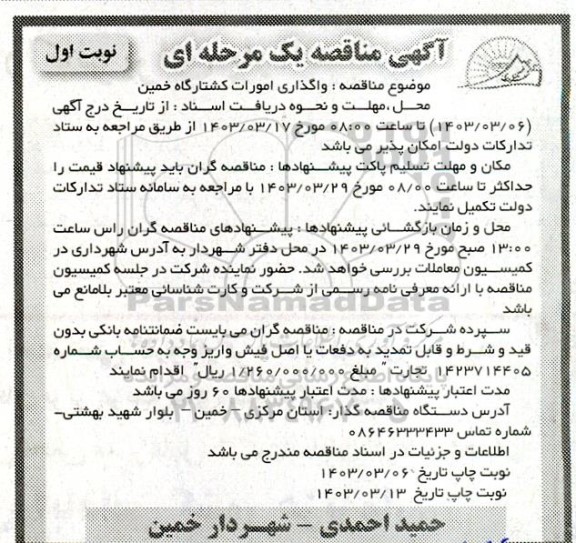 آگهی مناقصه یک مرحله ای
نوبت اول
موضوع مناقصه : واگذاری امورات کشتارگاه خمین
محل ،مهلت و نحوه دریافت اسناد : از تاریخ درج آگهی
(۱۴۰۳/۰۳/۰۶) تا ساعت ۰۸:۰۰ مورخ ۱۴۰۳/۰۳/۱۷ از طریق مراجعه به ستاد
تدارکات دولت امکان پذیر می باشد
مکان و مهلت تسلیم پاکت پیشنهادها : مناقصه گران باید پیشنهاد قیمت را
حداکثر تا ساعت ۰۸/۰۰ مورخ ۱۴۰۳/۰۳/۲۹ با مراجعه به سامانه ستاد تدارکات
دولت تکمیل نمایند.
محل و زمان بازگشائی پیشنهادها : پیشنهادهای مناقصه گران راس ساعت
۱۳:۰۰ صبح مورخ ۱۴۰۳/۰۳/۲۹ در محل دفتر شهردار به آدرس شهرداری در
کمیسیون معاملات بررسی خواهد شد. حضور نماینده شرکت در جلسه کمیسیون
مناقصه با ارائه معرفی نامه رسمی از شرکت و کارت شناسائی معتبر بلامانع می
باشد
ParsNamadData
سپرده شرکت در مناقصه : مناقصه گران می بایست ضمانتنامه بانکی بدون
قید و شرط و قابل تمدید به دفعات یا اصل فیش واریز وجه به حساب شماره
۱۴۲۳۷۱۴۴۰۵ تجارت " مبلغ ۱/۲۶۰/۰۰۰/۰۰۰ ریال" اقدام نمایند
مدت اعتبار پیشنهادها : مدت اعتبار پیشنهادها ۶۰ روز می باشد
آدرس دستگاه مناقصه گذار: استان مرکزی – خمین – بلوار شهید بهشتی–
شماره تماس ۰۸۶۴۶۳۳۳۴۳۳
اطلاعات و جزئیات در اسناد مناقصه مندرج می باشد
نوبت چاپ تاریخ ۱۴۰۳/۰۳/۰۶
نوبت چاپ تاریخ ۱۴۰۳/۰۳/۱۳
حمید احمدی – شهردار خمین